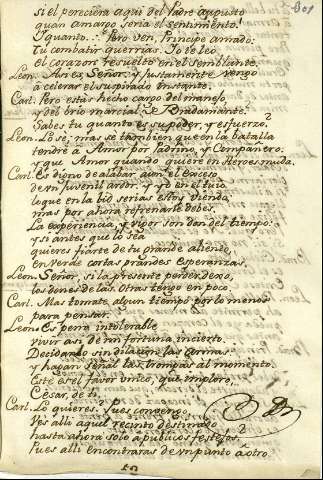 si el pereciera aqui del Yere augusto
quan amargo seria el sentimento!
Y quanto..: Pero ven, Principe amado:
Tu combatir querrias. Yo te leo
el corazon resuelto en el semblante.
Leon. Asi es, Señor, y justamente vengo
à celerar el suspirado instante.
Carl. Pero estàs hecho cargo del manejo
y del brio marcial de Bradamante?
Sabes tu quanto es su poder, y esfuerzo?
Leon. Lo sè; mas se tambien, que en la batalla
tendrè à Amor por Padrino, y Compañero:
y que Amor quando quiere en Heroes muda.
Carl. Es digno de alabar aun el exceso
de un juvenil ardor: y yo en el tuio
lo que en la lid serias estoy viendo,
mas por ahora refrenarle debes.
La experiencia, y vigor son don del tiempo:
y si antes que lo sea
quieres fiarte de tu grande aliento,
en verde cortas grandes esperanzas.
Leon. Señor, si la presente perder dexo,
los dones de las otras tengo en poco.
Carl. Mas tomate algun tiempo por lo menos
para pensar.
Leon. Es pena intolerable
vivir asi de mi fortuna incierto.
Decidanlo sin dilacion las armas
y hagan señal las trompas al momento.
Este es el favor unico, que imploro,
Cesar, de ti.
Carl. Lo quieres? Pues convengo.
Ves alli aquel recinto destinado
hasta ahora solo a publicos festejos?
Pues alli encontraras de un punto à otro.